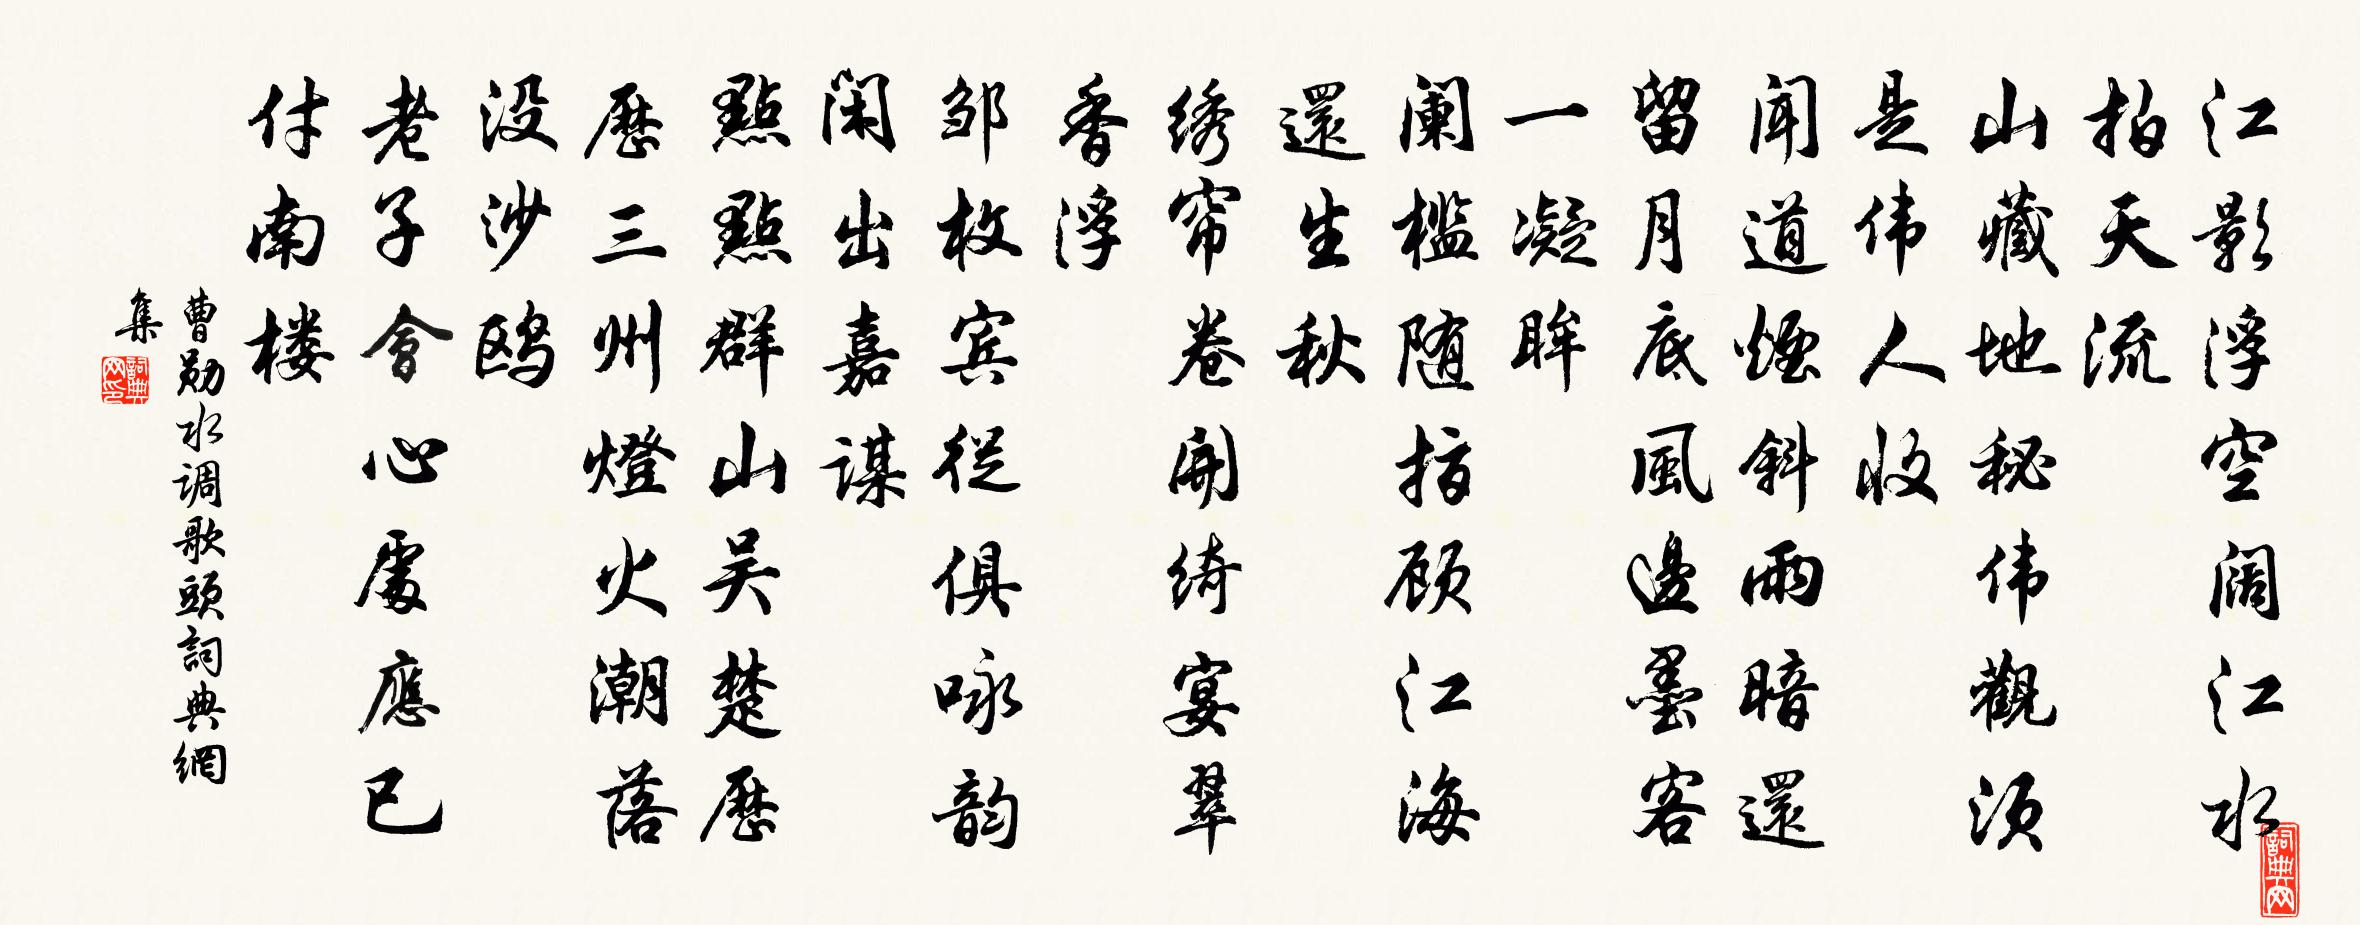 江影浮空阔江水
拍天流
山藏地秘伟觀须
是伟人收
闻道煙斜雨暗還
留月底風邊墨客
一凝眸
阑槛随指顾江海
還生秋
绣帘卷開绮宴翠
香浮
邹枚宾從俱咏韵
闲出嘉谋
點點群山吴楚歷
歷三州燈火潮落
没沙鸥
老子會心處應已
付南楼
曹勋水调歌頭詞典網
集
詞典网印
詞典网